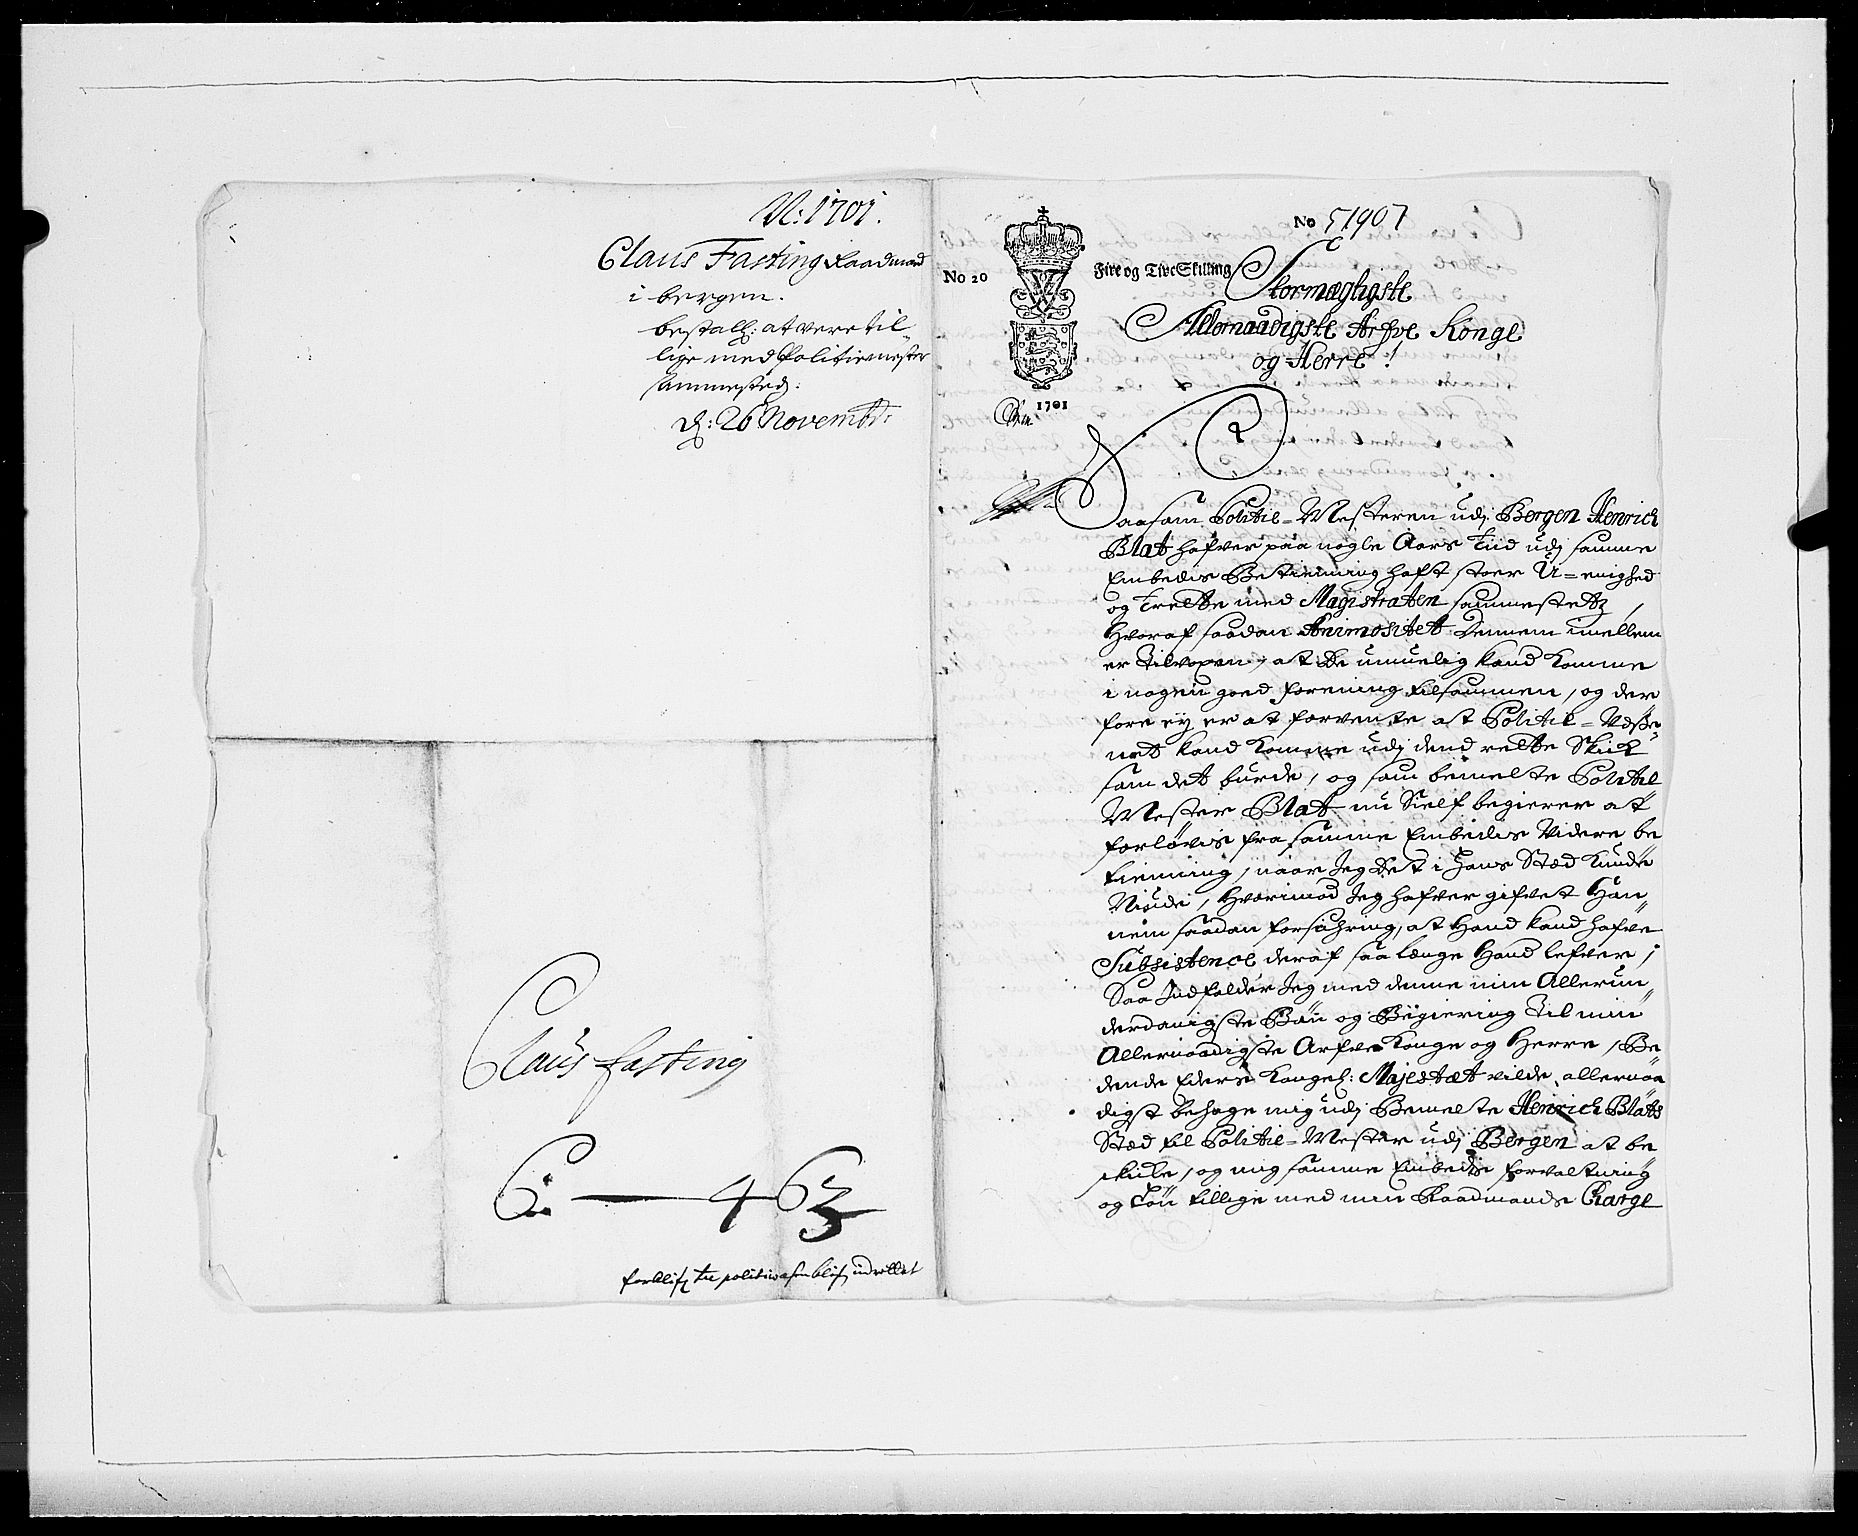 N: 1701.
Claus Fasting Raadmand
i bergen.
bestall: at vere til
lige med Politiemester
sammested:
d: 26 Novembr:
Claus fasting
C: — 463
forklif: til politivæsen blif: indrettet
No 51907
No 20
Fire og Tive Skilling
1701
Stormægtigste
Allernaadigste Arfve Konge
og Herre!
Saasom Politie-Mesteren udj Bergen Henrich
Blat hafver paa nogle Aars Tiid udj samme
Embedis Betiening haft stoer U-enighed
og Trette med Magistraten sammestetz,
hvoraf saadan Animositet dennem imellem
er tilvoxen, at de umuelig kand komme
i nogen goed forening tilsammen, og der
fore ej er at forvente at Politie-Væse-
net kand komme udj dend rette Skick
som det burde, og som bemelte Politie
Mester Blat nu Sielf begierer at
forløvis fra samme Embedis Videre be
tiening, naar Jeg det i hans Stæd kunde
Niude, hvorimod Jeg hafver gifvet Han-
nem saadan forsichring, at hand kand hafve
Subsistence deraf saa længe hand lefver,
Saa Indfalder Jeg med denne min Allerun-
derdanigste Bøn og Begiering til min
Allernaadigste Arfve Konge og Herre, Be
dende Eders Kongel: Majestæt vilde allernaa
digst behage mig udj Bemelte Henrich Blats
Stæd til Politie-Mester udj Bergen at be
skicke, og mig samme Embedis forvaltning
og Løn tillige med min Raadmands Charge